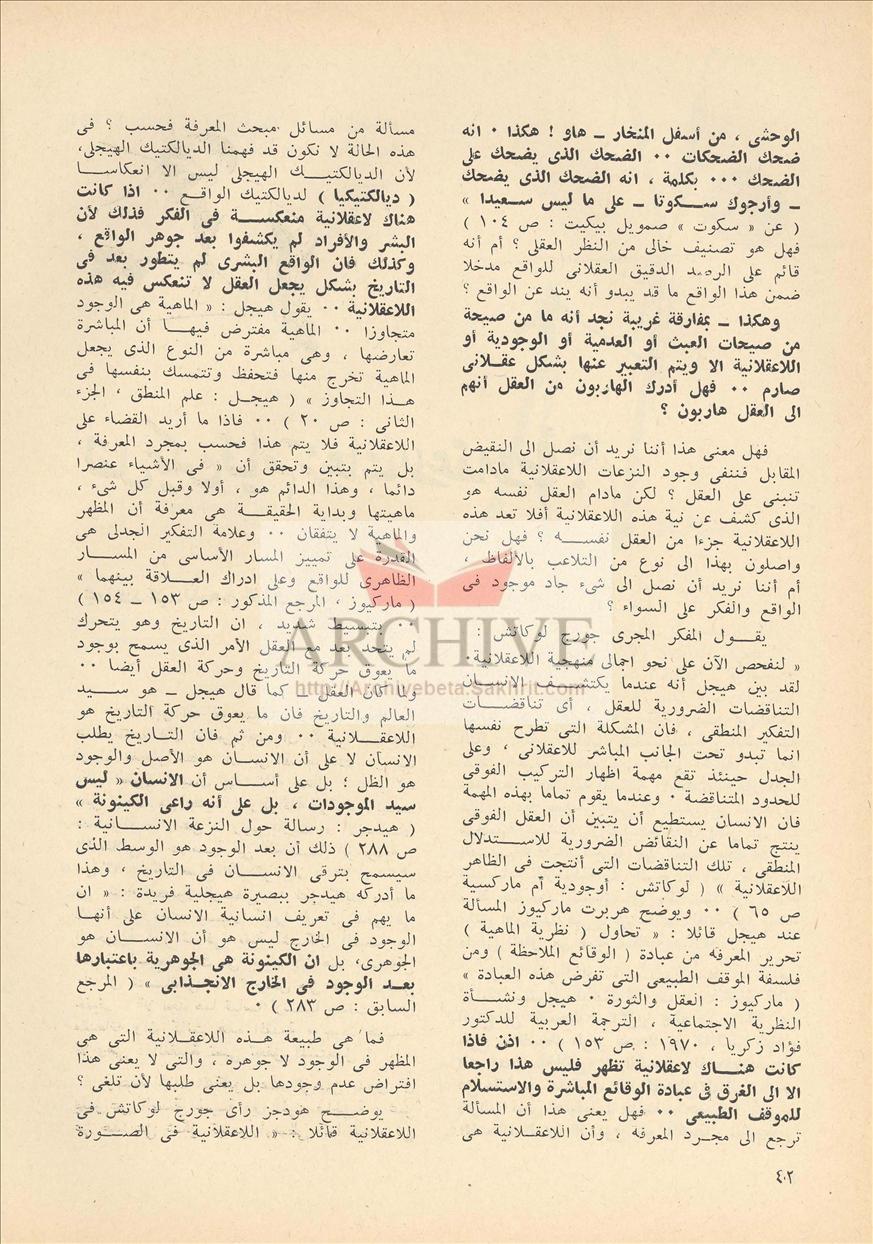 الوحشى ، من أسفل المنخار ــ هاو ! هكذا ٠ انه
ضحك الضحكات ٠٠ الضحك الذى يضحك على
الضحك ٠٠٠ بكلمة ، انه الضحك الذى يضحك
ــ وأرجوك سكوتا ــ على ما ليس سعيدا »
( عن « سكوت » صمويل بيكيت : ص ١٠٤ )
فهل هو تصنيف خالى من النظر العقلى ؟ أم أنه
قائم على الرصد الدقيق العقلانى للواقع مدخلا
ضمن هذا الواقع ما قد يبدو أنه يند عن الواقع ؟
وهكذا ــ بمفارقة غريبة نجد أنه ما من صيحة
من صيحات العبث أو العدمية أو الوجودية أو
اللاعقلانية الا ويتم التعبير عنها بشكل عقلانى
صارم ٠٠ فهل أدرك الهاربون من العقل أنهم
الى العقل هاربون ؟
فهل معنى هذا أننا نريد أن نصل الى النقيض
المقابل فننفى وجود النزعات اللاعقلانية مادامت
تنبنى على العقل ؟ لكن مادام العقل نفسه هو
الذى كشف عن نية هذه اللاعقلانية أفلا تعد هذه
اللاعقلانية جزءا من العقل نفسه ؟ فهل نحن
واصلون بهذا الى نوع من التلاعب بالألفاظ ،
أم أننا نريد أن نصل الى شىء جاد موجود فى
الواقع والفكر على السواء ؟
يقول المفكر المجرى جورج لوكاتش :
« لنفحص الآن على نحو اجمالى منهجية اللاعقلانية٠
لقد بين هيجل أنه عندما يكتشف الانسان
التناقضات الضرورية للعقل ، أى تناقضات
التفكير المنطقى ، فان المشكلة التى تطرح نفسها
انما تبدو تحت الجانب المباشر للاعقلانى ، وعلى
الجدل حينئذ تقع مهمة اظهار التركيب الفوقى
للحدود المتناقضة ٠ وعندما يقوم تماما بهذه المهمة
فان الانسان يستطيع أن يتبين أن العقل الفوقى
ينتج تماما عن النقائض الضرورية للاستدلال
المنطقى ، تلك التناقضات التى أنتجت فى الظاهر
اللاعقلانية » ( لوكاتش : أوجودية أم ماركسية
ص ٦٥ ) ٠٠ ويوضح هربرت ماركيوز المسألة
عند هيجل قائلا : « تحاول ( نظرية الماهية )
تحرير المعرفه من عبادة ( الوقائع الملاحظة ) ومن
فلسفة الموقف الطبيعى التى تفرض هذه العبادة »
( ماركيوز : العقل والثورة ٠ هيجل ونشأة
النظرية الاجتماعية ، الترجمة العربية للدكتور
فؤاد زكريا ، ١٩٧٠ : ص ١٥٣ ) ٠٠ اذن فاذا
كانت هناك لاعقلانية تظهر فليس هذا راجعا
الا الى الغرق فى عبادة الوقائع المباشرة والاستسلام
للموقف الطبيعى ٠٠ فهل يعنى هذا أن المسألة
ترجع الى مجرد المعرفه ، وأن اللاعقلانية هى
مسألة من مسائل مبحث المعرفة فحسب ؟ فى
هذه الحالة لا نكون قد فهمنا الديالكتيك الهيجلى،
لأن الديالكتيك الهيجلى ليس الا انعكاسا
( ديالكتيكيا ) لديالكتيك الواقع ٠٠ اذا كانت
هناك لاعقلانية منعكسة فى الفكر فذلك لأن
البشر والأفراد لم يكشفوا بعد جوهر الواقع ،
وكذلك فان الواقع البشرى لم يتطور بعد فى
التاريخ بشكل يجعل العقل لا تنعكس فيه هذه
اللاعقلانية ٠٠ يقول هيجل : « الماهية هى الوجود
متجاوزا ٠٠ الماهية مفترض فيها أن المباشرة
تعارضها ، وهى مباشرة من النوع الذى يجعل
الماهية تخرج منها فتحفظ وتتمسك بنفسها فى
هذا التجاوز » ( هيجل : علم المنطق ، الجزء
الثانى : ص ٢٠ ) ٠٠ فاذا ما أريد القضاء على
اللاعقلانية فلا يتم هذا فحسب بمجرد المعرفة ،
بل يتم بتبين وتحقق أن « فى الأشياء عنصرا
دائما ، وهذا الدائم هو ، أولا وقبل كل شىء ،
ماهيتها وبداية الحقيقة هى معرفة أن المظهر
والماهية لا يتفقان ٠٠ وعلامة التفكير الجدلى هى
القدرة على تمييز المسار الأساسى من المسار
الظاهرى للواقع وعلى ادراك العلاقة بينهما »
( ماركيوز ، المرجع المذكور : ص ١٥٣ ــ ١٥٤ )
٠٠ بتبسيط شديد ، ان التاريخ وهو يتحرك
لم يتحد بعد مع العقل الأمر الذى يسمح بوجود
ما يعوق حركة التاريخ وحركة العقل أيضا ٠٠
ولما كان العقل ــ كما قال هيجل ــ هو سيد
العالم والتاريخ فان ما يعوق حركة التاريخ هو
اللاعقلانية ٠٠ ومن ثم فان التاريخ يطلب
الانسان لا على أن الانسان هو الأصل والوجود
هو الظل ؛ بل على أساس أن الانسان « ليس
سيد الموجودات ، بل على أنه راعى الكينونة »
( هيدجر : رسالة حول النزعة الانسانية :
ص ٢٨٨ ) ذلك أن بعد الوجود هو الوسط الذى
سيسمح بترقى الانسان فى التاريخ ، وهذا
ما أدركه هيدجر ببصيرة هيجلية فريدة : « ان
ما يهم فى تعريف انسانية الانسان على أنها
الوجود فى الخارج ليس هو أن الانسان هو
الجوهرى، بل ان الكينونة هى الجوهرية باعتبارها
بعد الوجود فى الخارج الانجذابى » ( المرجع
السابق : ص ٢٨٣ ) ٠
فما هى طبيعة هذه اللاعقلانية التى هى
المظهر فى الوجود لا جوهره ، والتى لا يعنى هذا
افتراض عدم وجودها بل يعنى طلبها لأن تلغى ؟
يوضح هودجز رأى جورج لوكاتش فى
اللاعقلانية قائلا : « اللاعقلانية فى الصورة
٤٠٢
ARCHIVE
http://Archivebeta.Sakhrit.com